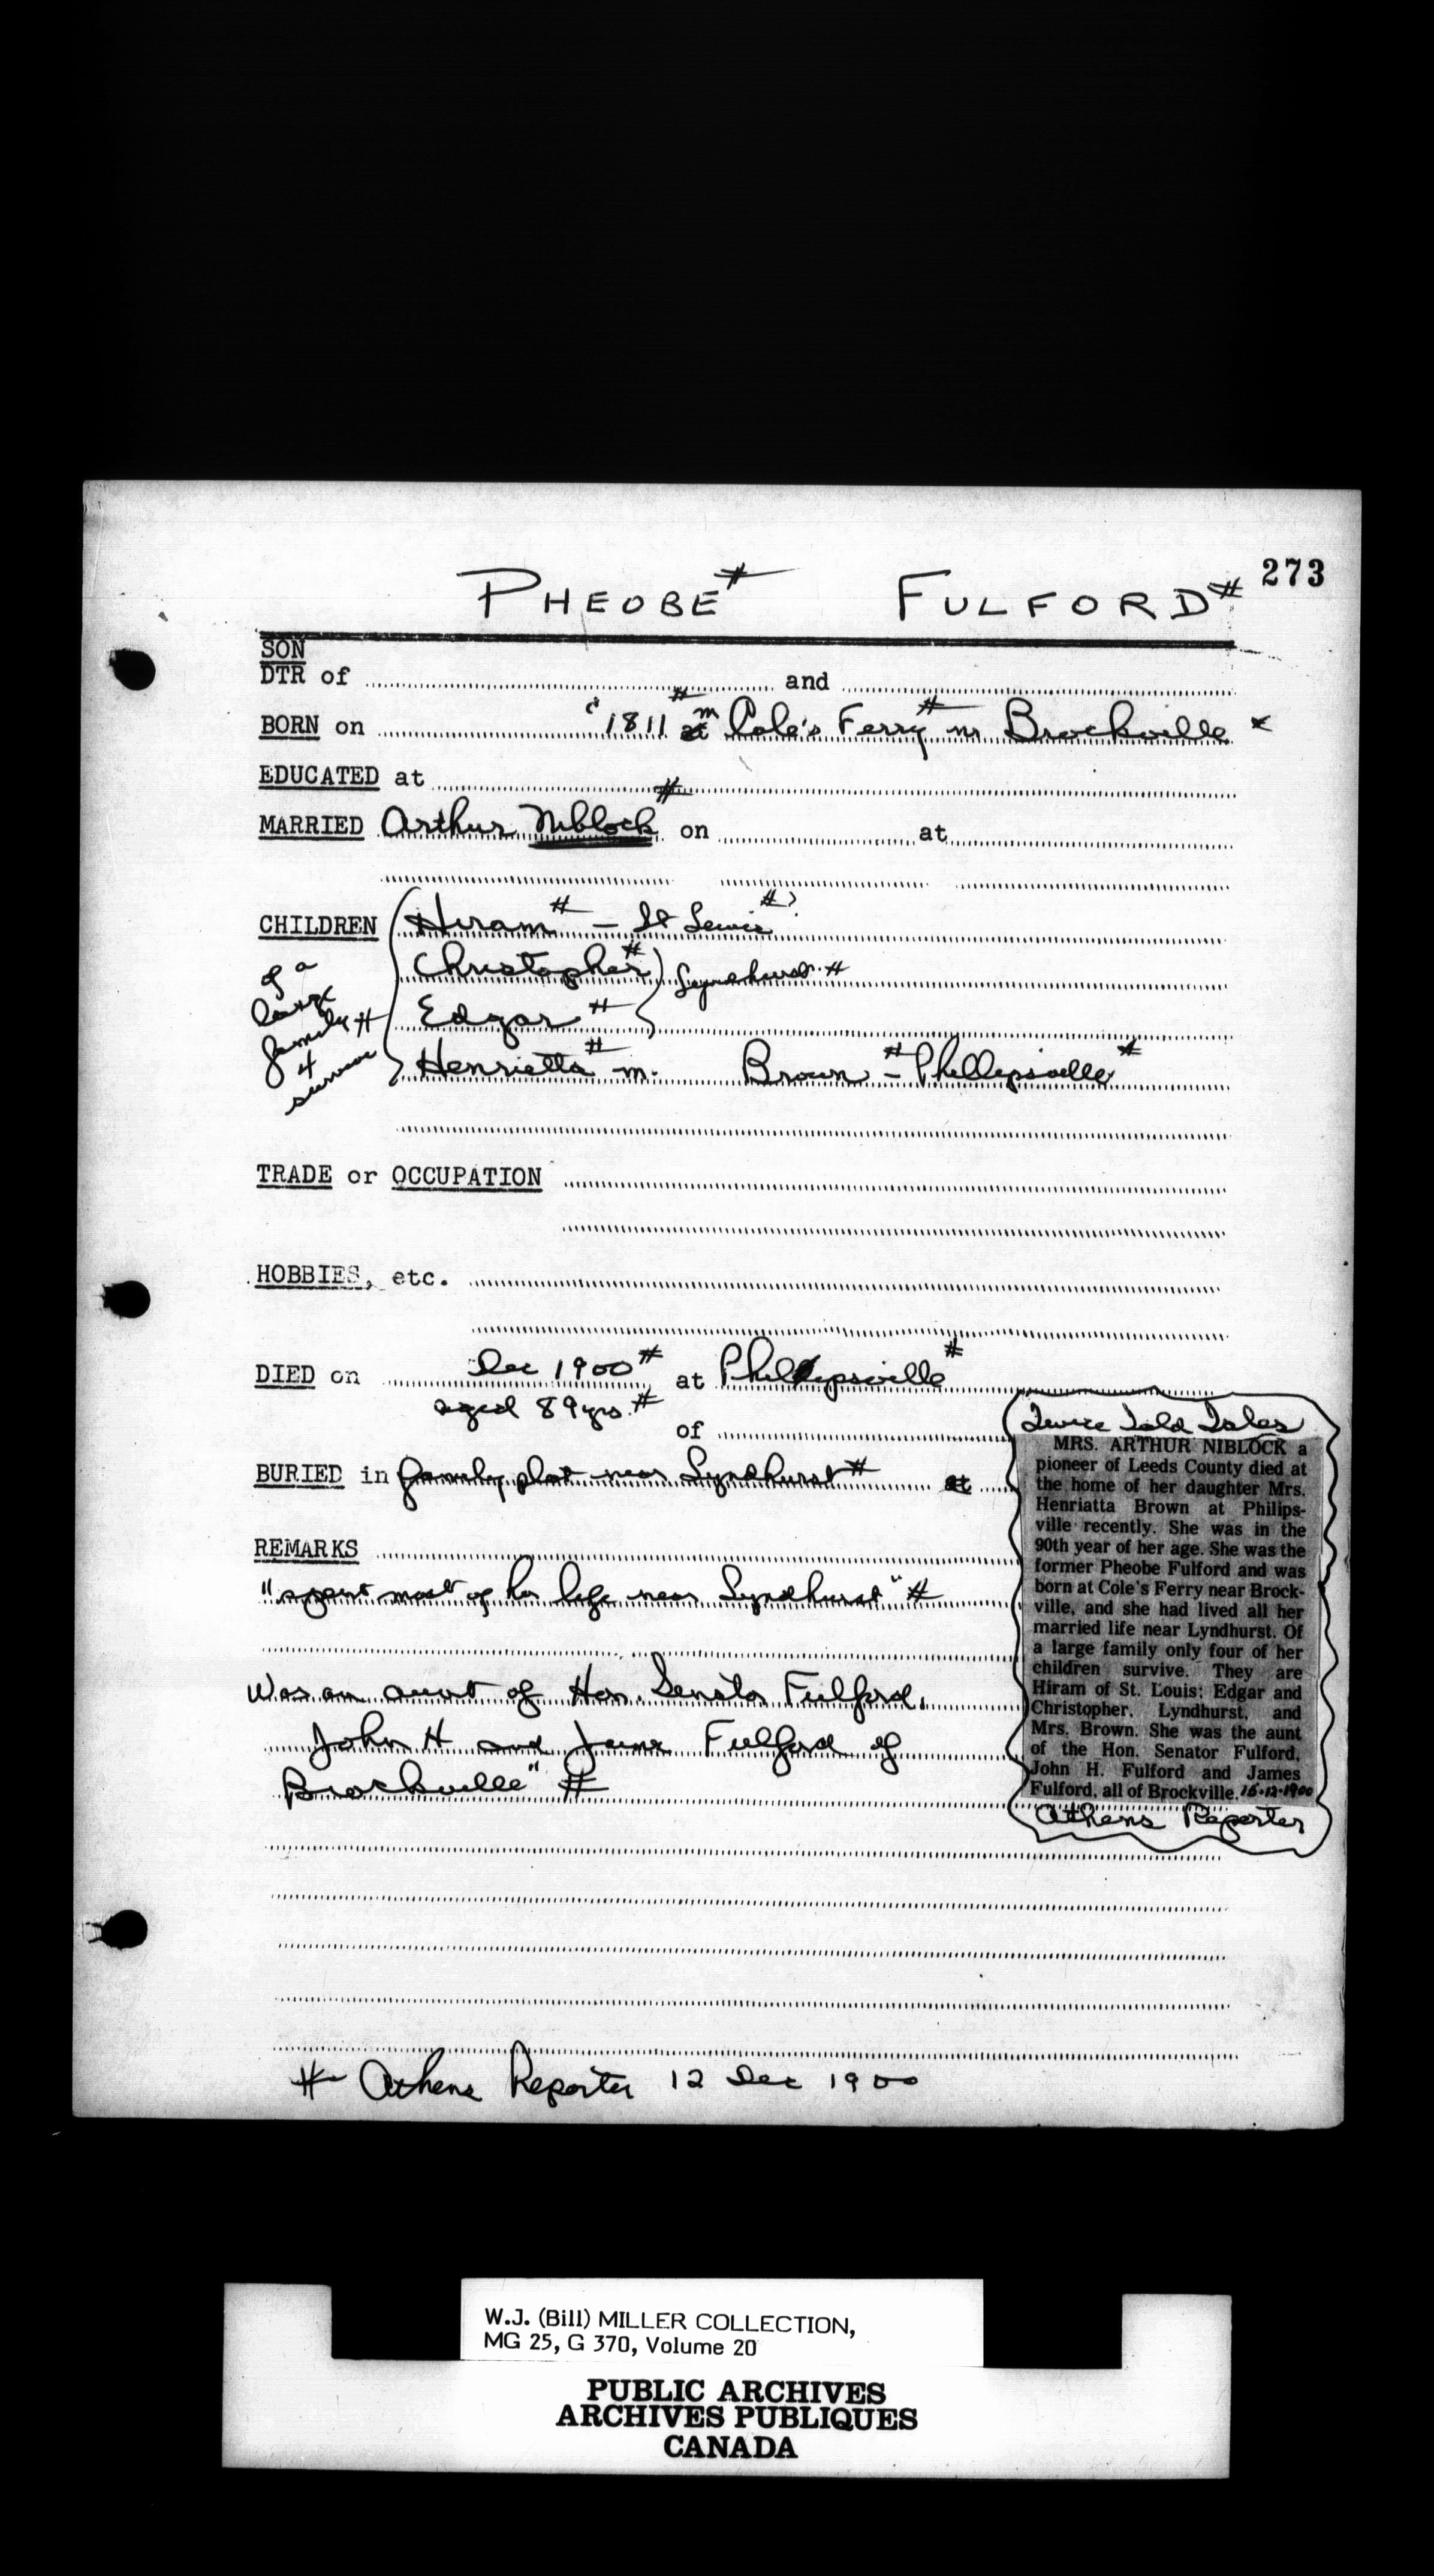 273
PHEOBE # FULFORD #
SON
DTR of and
BORN on c 1811 # at Cole's Ferry # nr Brockville #
EDUCATED at
MARRIED Arthur Niblock # on at
CHILDREN Hiram # - St Lewis #?
Christopher # Lyndhurst #
Edgar #
Henrietta # m. Brown # - Phillipsville #
of a
large
family #
4
survive
TRADE or OCCUPATION
HOBBIES, etc.
DIED on Dec 1900 # at Phillipsville #
aged 89 yrs. #
of
BURIED in family plot near Lyndhurst # at
REMARKS
"spent most of her life near Lyndhurst" #
Was an aunt of Hon. Senator Fulford,
John H and James Fulford of
Brockville" #
Twice Told Tales
MRS. ARTHUR NIBLOCK a
pioneer of Leeds County died at
the home of her daughter Mrs.
Henriatta Brown at Philips-
ville recently. She was in the
90th year of her age. She was the
former Pheobe Fulford and was
born at Cole's Ferry near Brock-
ville, and she had lived all her
married life near Lyndhurst. Of
a large family only four of her
children survive. They are
Hiram of St. Louis; Edgar and
Christopher, Lyndhurst, and
Mrs. Brown. She was the aunt
of the Hon. Senator Fulford,
John H. Fulford and James
Fulford, all of Brockville. 15-12-1900
Athens Reporter
# Athens Reporter 12 Dec 1900
W.J. (Bill) MILLER COLLECTION,
MG 25, G 370, Volume 20
PUBLIC ARCHIVES
ARCHIVES PUBLIQUES
CANADA